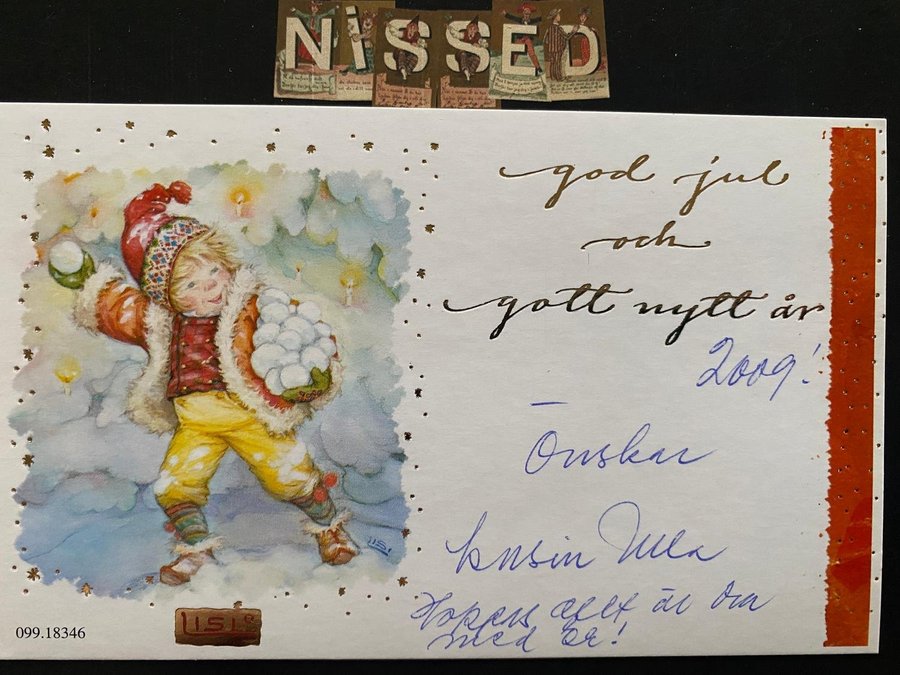 NiSSED
god jul
och
gott nytt år
2009!
Önskar
kusin Ulla
Hoppas allt är bra
med er!
LiSi
LISI®
099.18346